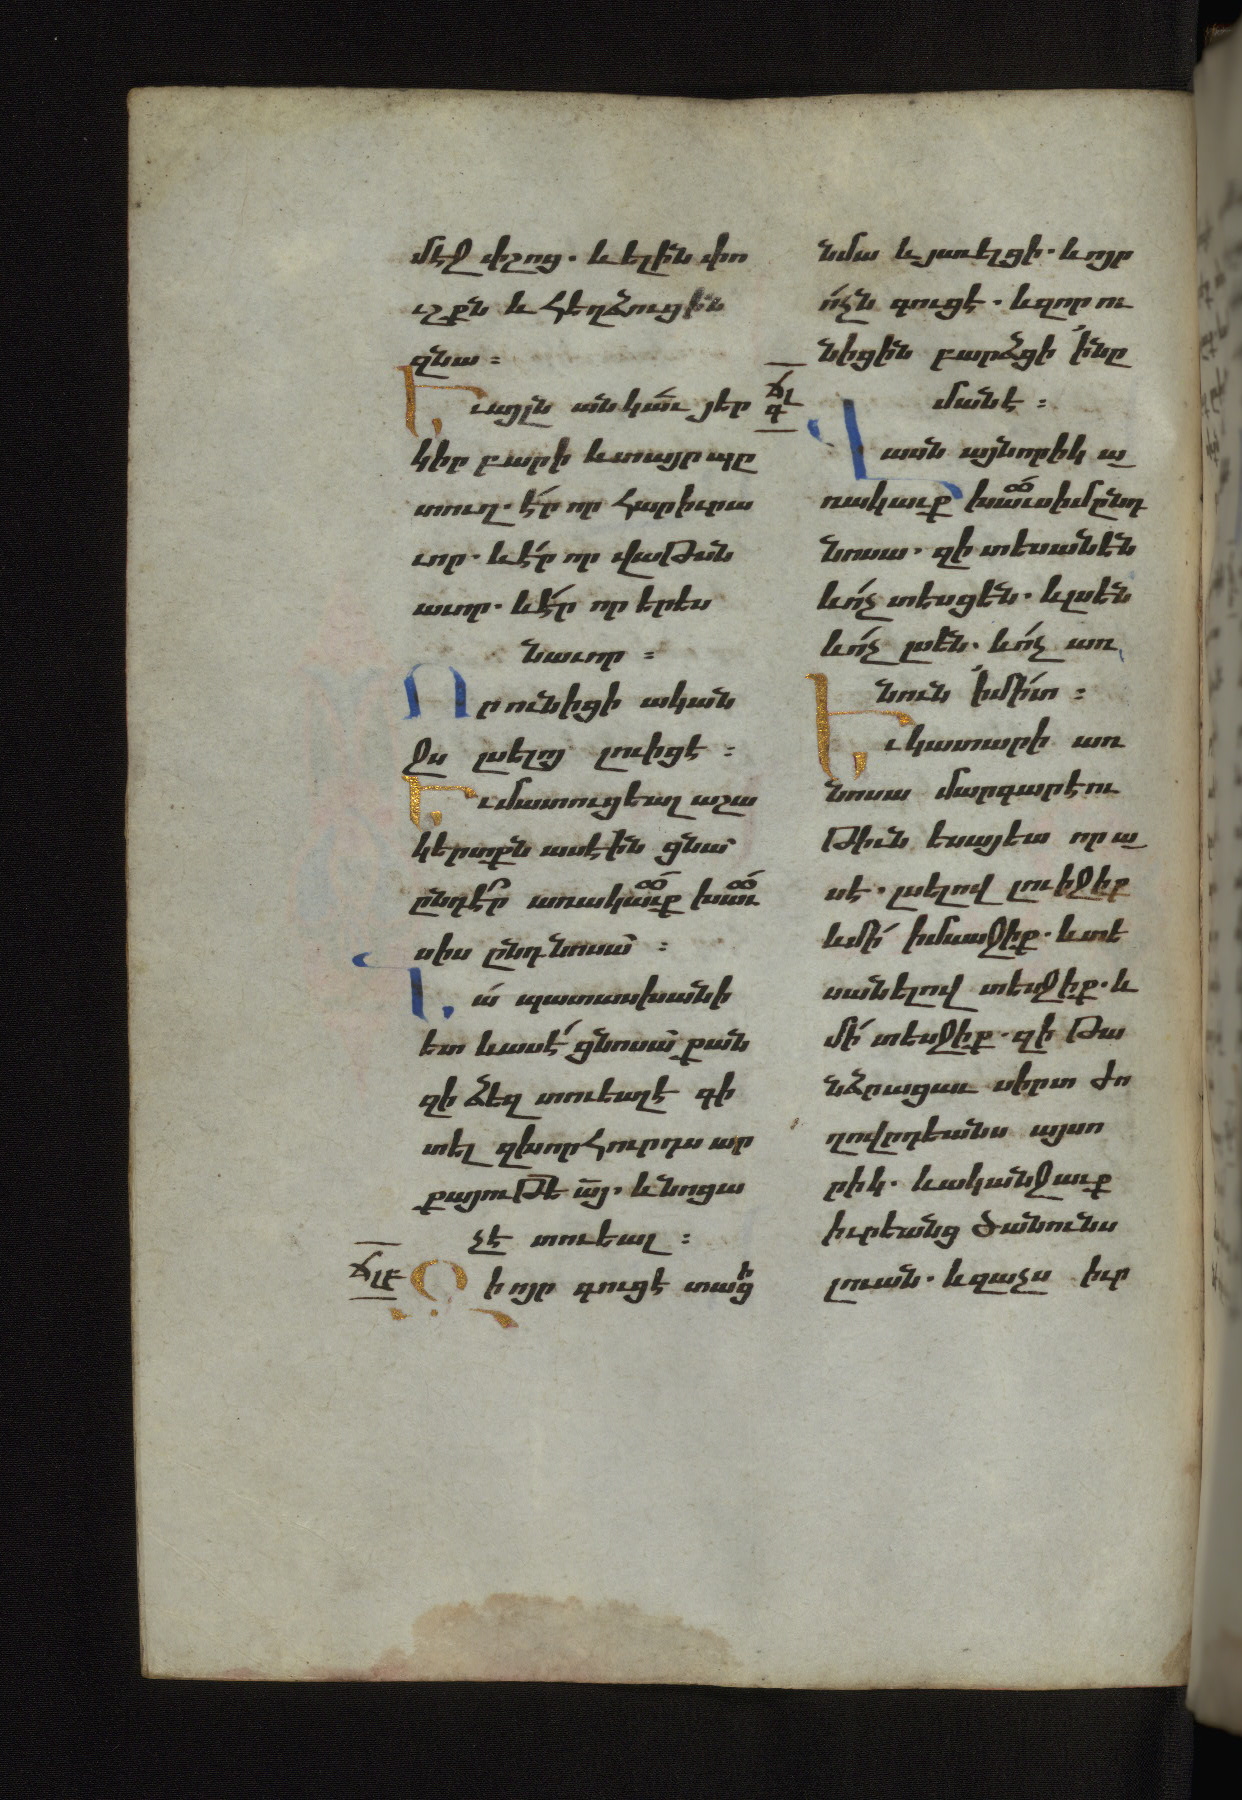 մէջ փշոց. և ելին փո
ւշքն և հեղձուցին
զնա :
Եւ այլն անկաւ յեր
կիր բարի և տայր պը
տուղ. է՛ր որ հարիւրա
ւոր. և է՛ր որ վաթսն
աւոր. և է՛ր որ երես
նաւոր :
Որ ունիցի ական
ջս լսելոյ լուիցէ :
Եւ մատուցեալ աշա
կերտքն ասէին ցնա՜
ընդէ՞ր առակա՜ւք խա՜ւ
սիս ընդ նոսա՜ :
Նա՛ պատասխանի
ետ և ասէ՛ ցնոսա՜ քան
զի ձեզ տուեալ է գի
տել զխորհուրդս ար
քայութե ա՜յ. և նոցա
չէ տուեալ :
ՃԼԲ Զի ոյր գուցէ տացի
նմա և յաւելցի. և ոյր
ո՛չն գուցէ. և զոր ու
նիցին բարձցի ՛ի նը
մանէ :
ՃԼԳ Վասն այնորիկ ա
ռակաւք խա՜ւսիմ ընդ
նոսա. զի տեսանեն
և ո՛չ տեսցեն. և լսեն
և ո՛չ լսեն. և ո՛չ առ
նուն ՛ի մի՛տ :
Եւ կատարի առ
նոսա մարգարէու
թիւն եսայեա որ ա
սէ. լսելով լուիջիք
և մի՛ իմասջիք. և տե
սանելով տեսջիք. և
մի՛ տեսջիք. զի թա
նձրացաւ սիրտ ժո
ղովըրդեանս այսո
րիկ. և ականջաւք
իւրեանց ծանունս
լուան. և զաչս իւր